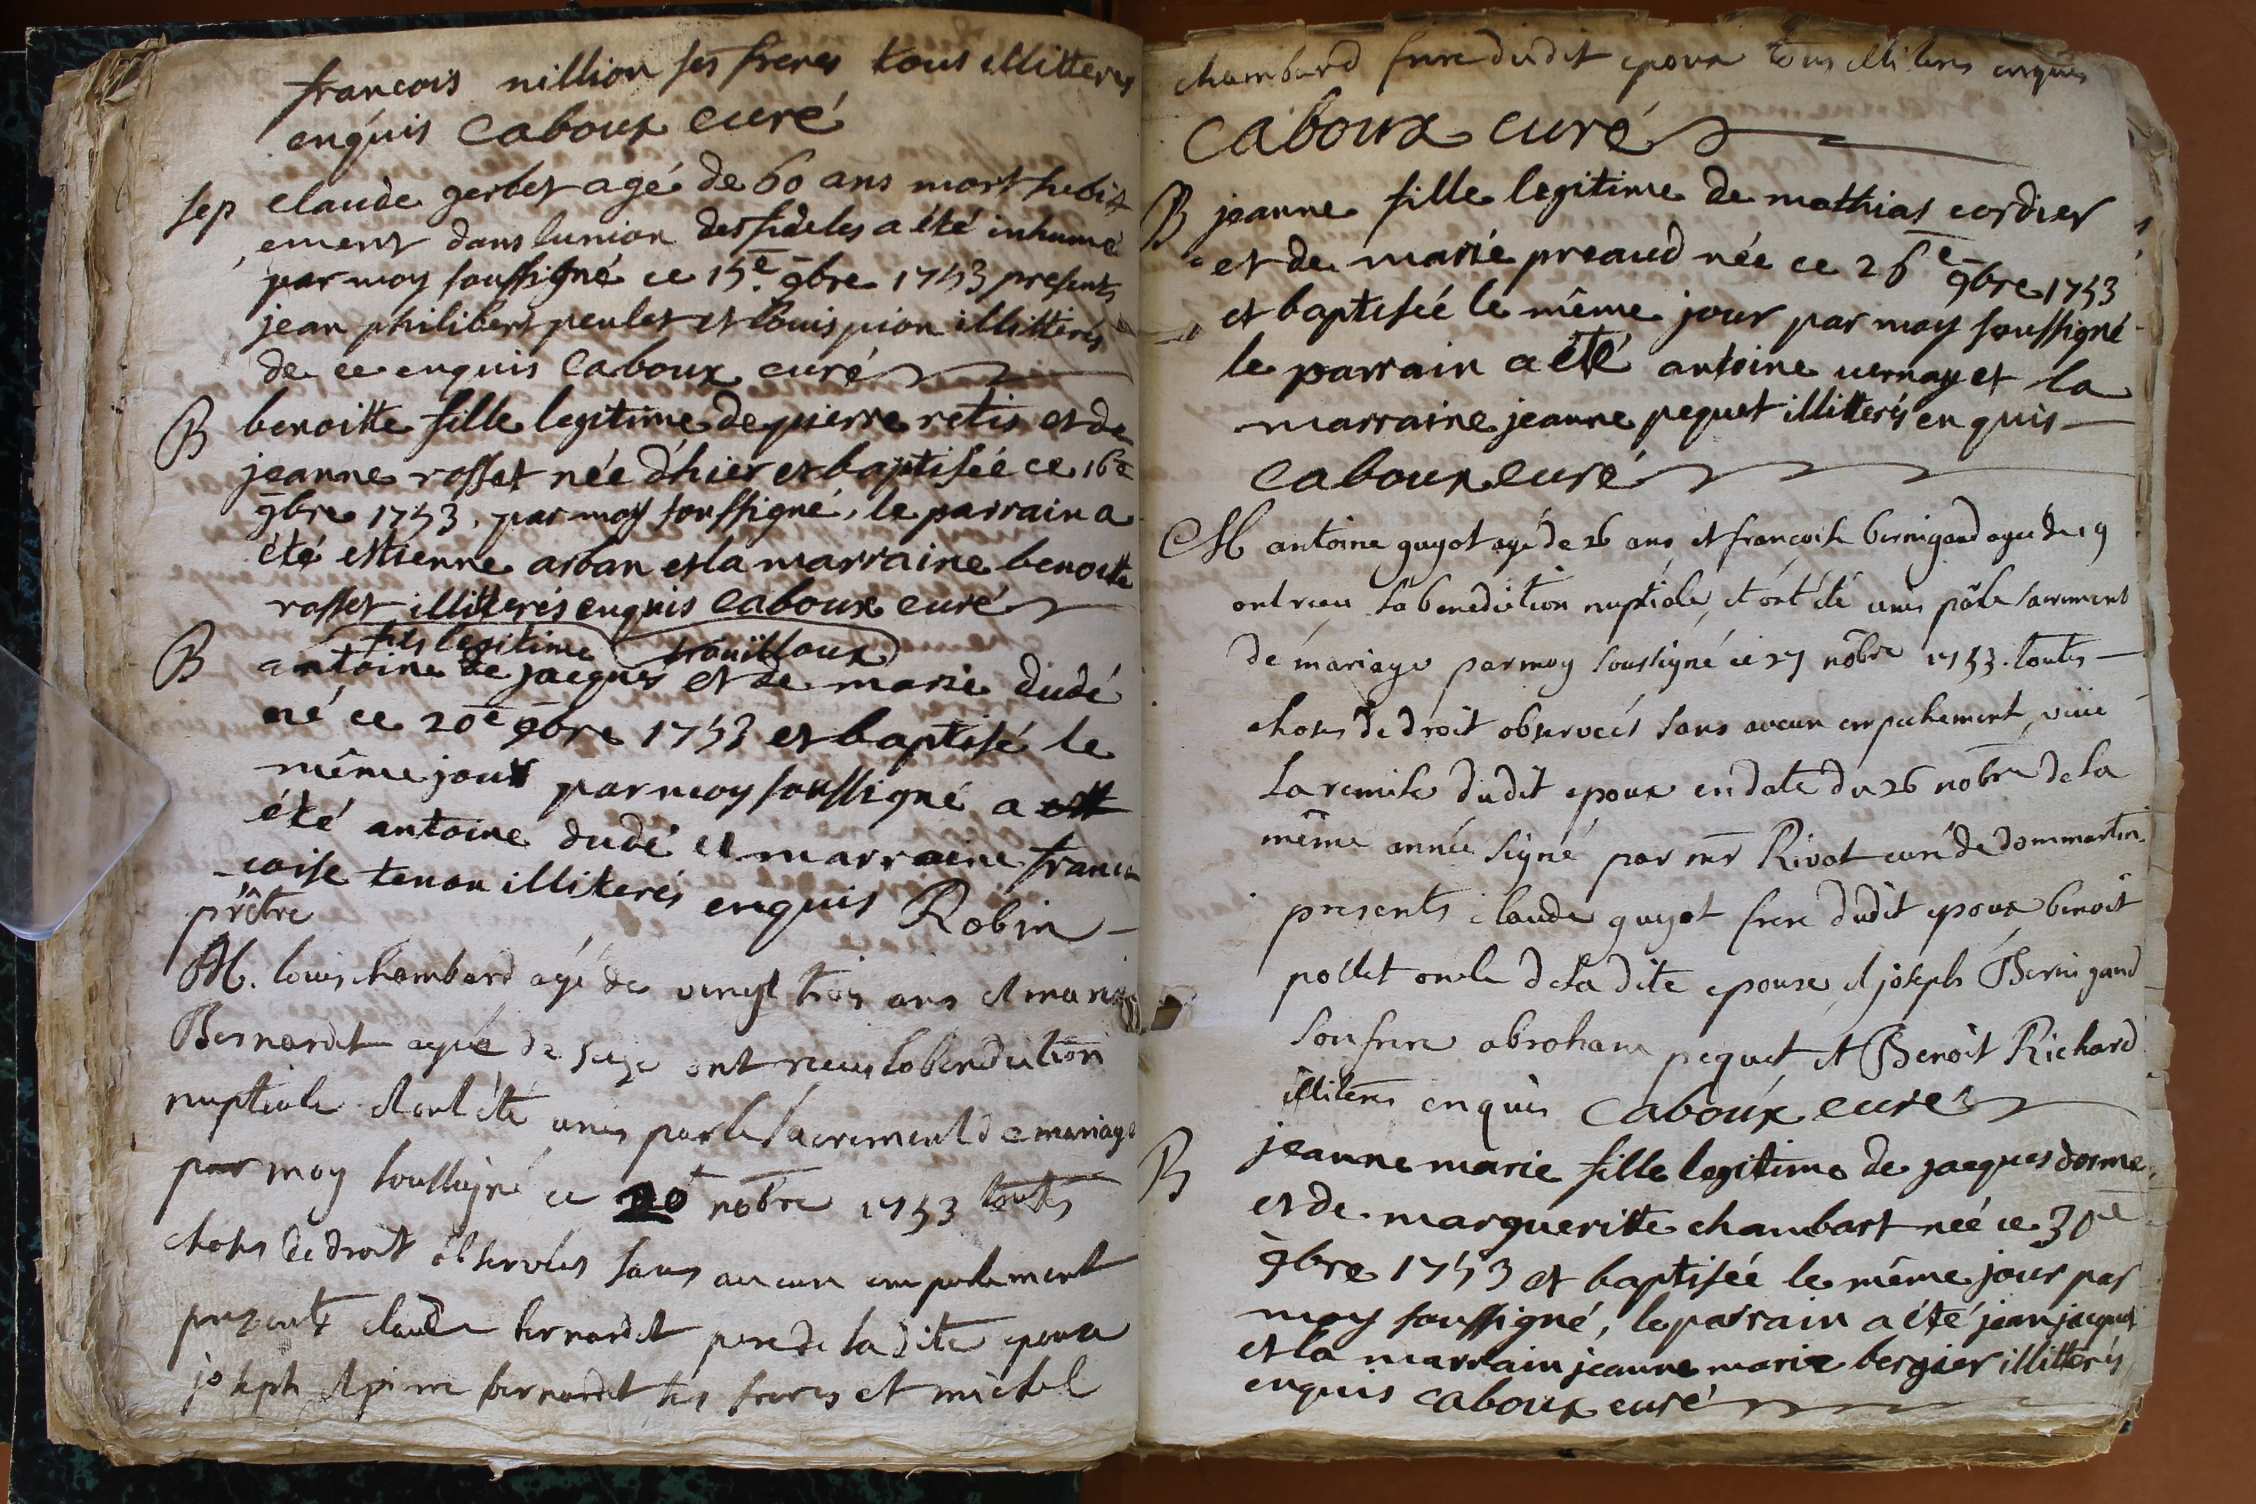 francois nillion ses freres tous illitteres
enquis Caboux curé
sep claude gerbet agé de 60 ans mort subit
ement dans lunion des fideles a été inhumé
par moy soussigné ce 15e. 9bre 1753 presents
jean philibert peulet et louis pion illitterés
de ce enquis Caboux curé
B benoitte fille legitime de pierre retis et de
jeanne rosset née d'hier et baptisée ce 16e
9bre 1753, par moy soussigné, le parrain a
été estienne arban et la marraine benoitte
rosset illitterés enquis Caboux curé
fils legitime trouilloux
B antoine de jacques et de marie dudé
né ce 20e 9bre 1753 et baptisé le
même jour par moy soussigné a
été antoine dudé et marraine franc
-coise tenon illiterés enquis Robin
prêtre
M. louis chambard agé de vingt trois ans et marie
Bernardet agée de seize ont receu la benediction
nuptiale et ont été unis par le sacrement de mariage
par moy soussigné ce 20 nobre 1753 toutes
choses de droit observées sans aucun empechement
presents claude bernardet pere de la dite epouse
joseph et pierre bernardet ses freres et michel
chambard frere dudit epoux tous illiteres enquis
Caboux curé
B jeanne fille legitime de mathias cordier
et de marie preaud née ce 26e 9bre 1753
et baptisée le même jour par moy soussigné
le parrain a été antoine vernay et la
marraine jeanne pequet illitterés enquis
Caboux curé
M antoine guyot agé de 26 ans et francoise bernigaud agée de 19
ont receu la benediction nuptiale, et ont été unis par le sacrement
de mariage par moy soussigné ce 27 nobre 1753. toutes
choses de droit observées sans aucun empechement, viüe
la remise dudit epoux en date du 26 nobre de la
même année signé par mr Rivat curé de dommartin
presents claude guyot frere dudit epoux benoit
pollet oncle de la dite epouse, et joseph Bernigaud
son frere abraham pequet et Benoit Richard
illiteres enquis Caboux curé
B jeanne marie fille legitime de jacques dorme
et de margueritte chambart née ce 30e
9bre 1753 et baptisée le même jour par
moy soussigné, le parrain a été jean jacques
et la marrain jeanne marie bergier illitterés
enquis Caboux curé